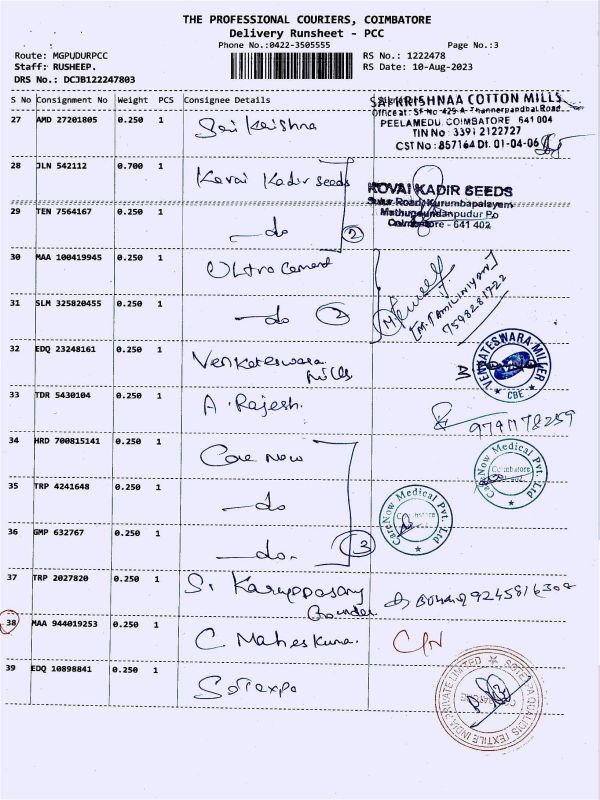 THE PROFESSIONAL COURIERS, COIMBATORE
Delivery Runsheet - PCC
Phone No.:0422-3505555
Page No.:3
Route: MGPUDURPCC
RS No.: 1222478
Staff: RUSHEEP.
RS Date: 10-Aug-2023
DRS No.: DCJB122247803
S No Consignment No Weight PCS Consignee Details
27 AMD 27201805 0.250 1 Sai Krishna
SAI KRISHNAA COTTON MILLS
Office at: SF No 429-A-Thannerpandhal Road,
PEELAMEDU, COIMBATORE 641 004
TIN No: 3391 2122727
CST No: 857164 Dt. 01-04-06
28 JLN 542112 0.700 1 Kovai Kadir seeds
KOVAI KADIR SEEDS
Sulur Road, Kurumbapalayam
Mathugoundanpudur Po
Coimbatore - 641 402
29 TEN 7564167 0.250 1 do 2
30 MAA 100419945 0.250 1 Ultra Cement
31 SLM 325820455 0.250 1 do 2
[M. TAMILINIYAN]
7598281722
32 EDQ 23248161 0.250 1 Venkateswara
Mills
VENKATESWARA MILLER
CBE
33 TDR 5430104 0.250 1 A. Rajesh.
34 HRD 700815141 0.250 1 Care Now
CareNow Medical Pvt. Ltd
Coimbatore
35 TRP 4241648 0.250 1 do
CareNow Medical Pvt. Ltd
36 GMP 632767 0.250 1 do 3
37 TRP 2027820 0.250 1 S. Karupposamy
Gounder
38 MAA 944019253 0.250 1 C. Mahes Kumar.
39 EDQ 10898841 0.250 1 Sotexpa
SOTEXPA QUALIDIS TEXTILE INDIA PRIVATE LIMITED